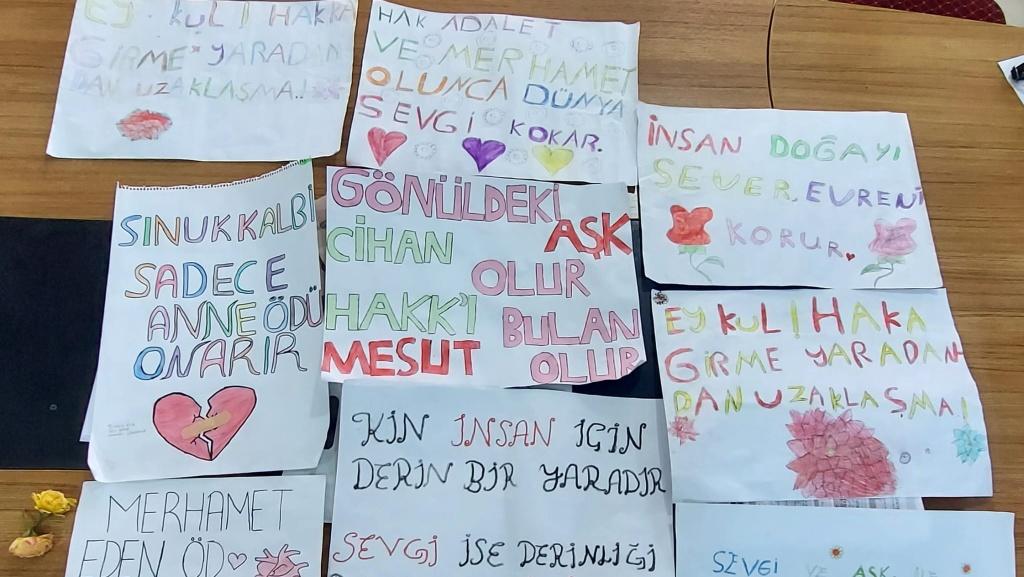 EY KUL! HAKKA
GİRME YARADAN
DAN UZAKLAŞMA..!
HAK ADALET
VE MERHAMET
OLUNCA DÜNYA
SEVGİ KOKAR.
İNSAN DOĞAYI
SEVER, EVRENİ
KORUR.
SINUK KALBİ
SADECE
ANNE ÖDÜ
ONARIR
GÖNÜLDEKİ
AŞK
CİHAN
OLUR
HAKK'I
BULAN
MESUT
OLUR
EY KUL! HAKA
GİRME YARADAN
DAN UZAKLAŞMA!
KİN İNSAN İÇİN
DERİN BİR YARADIR
SEVGİ İSE DERİNLİĞİ
MERHAMET
EDEN ÖD
SEVGİ VE AŞK İLE